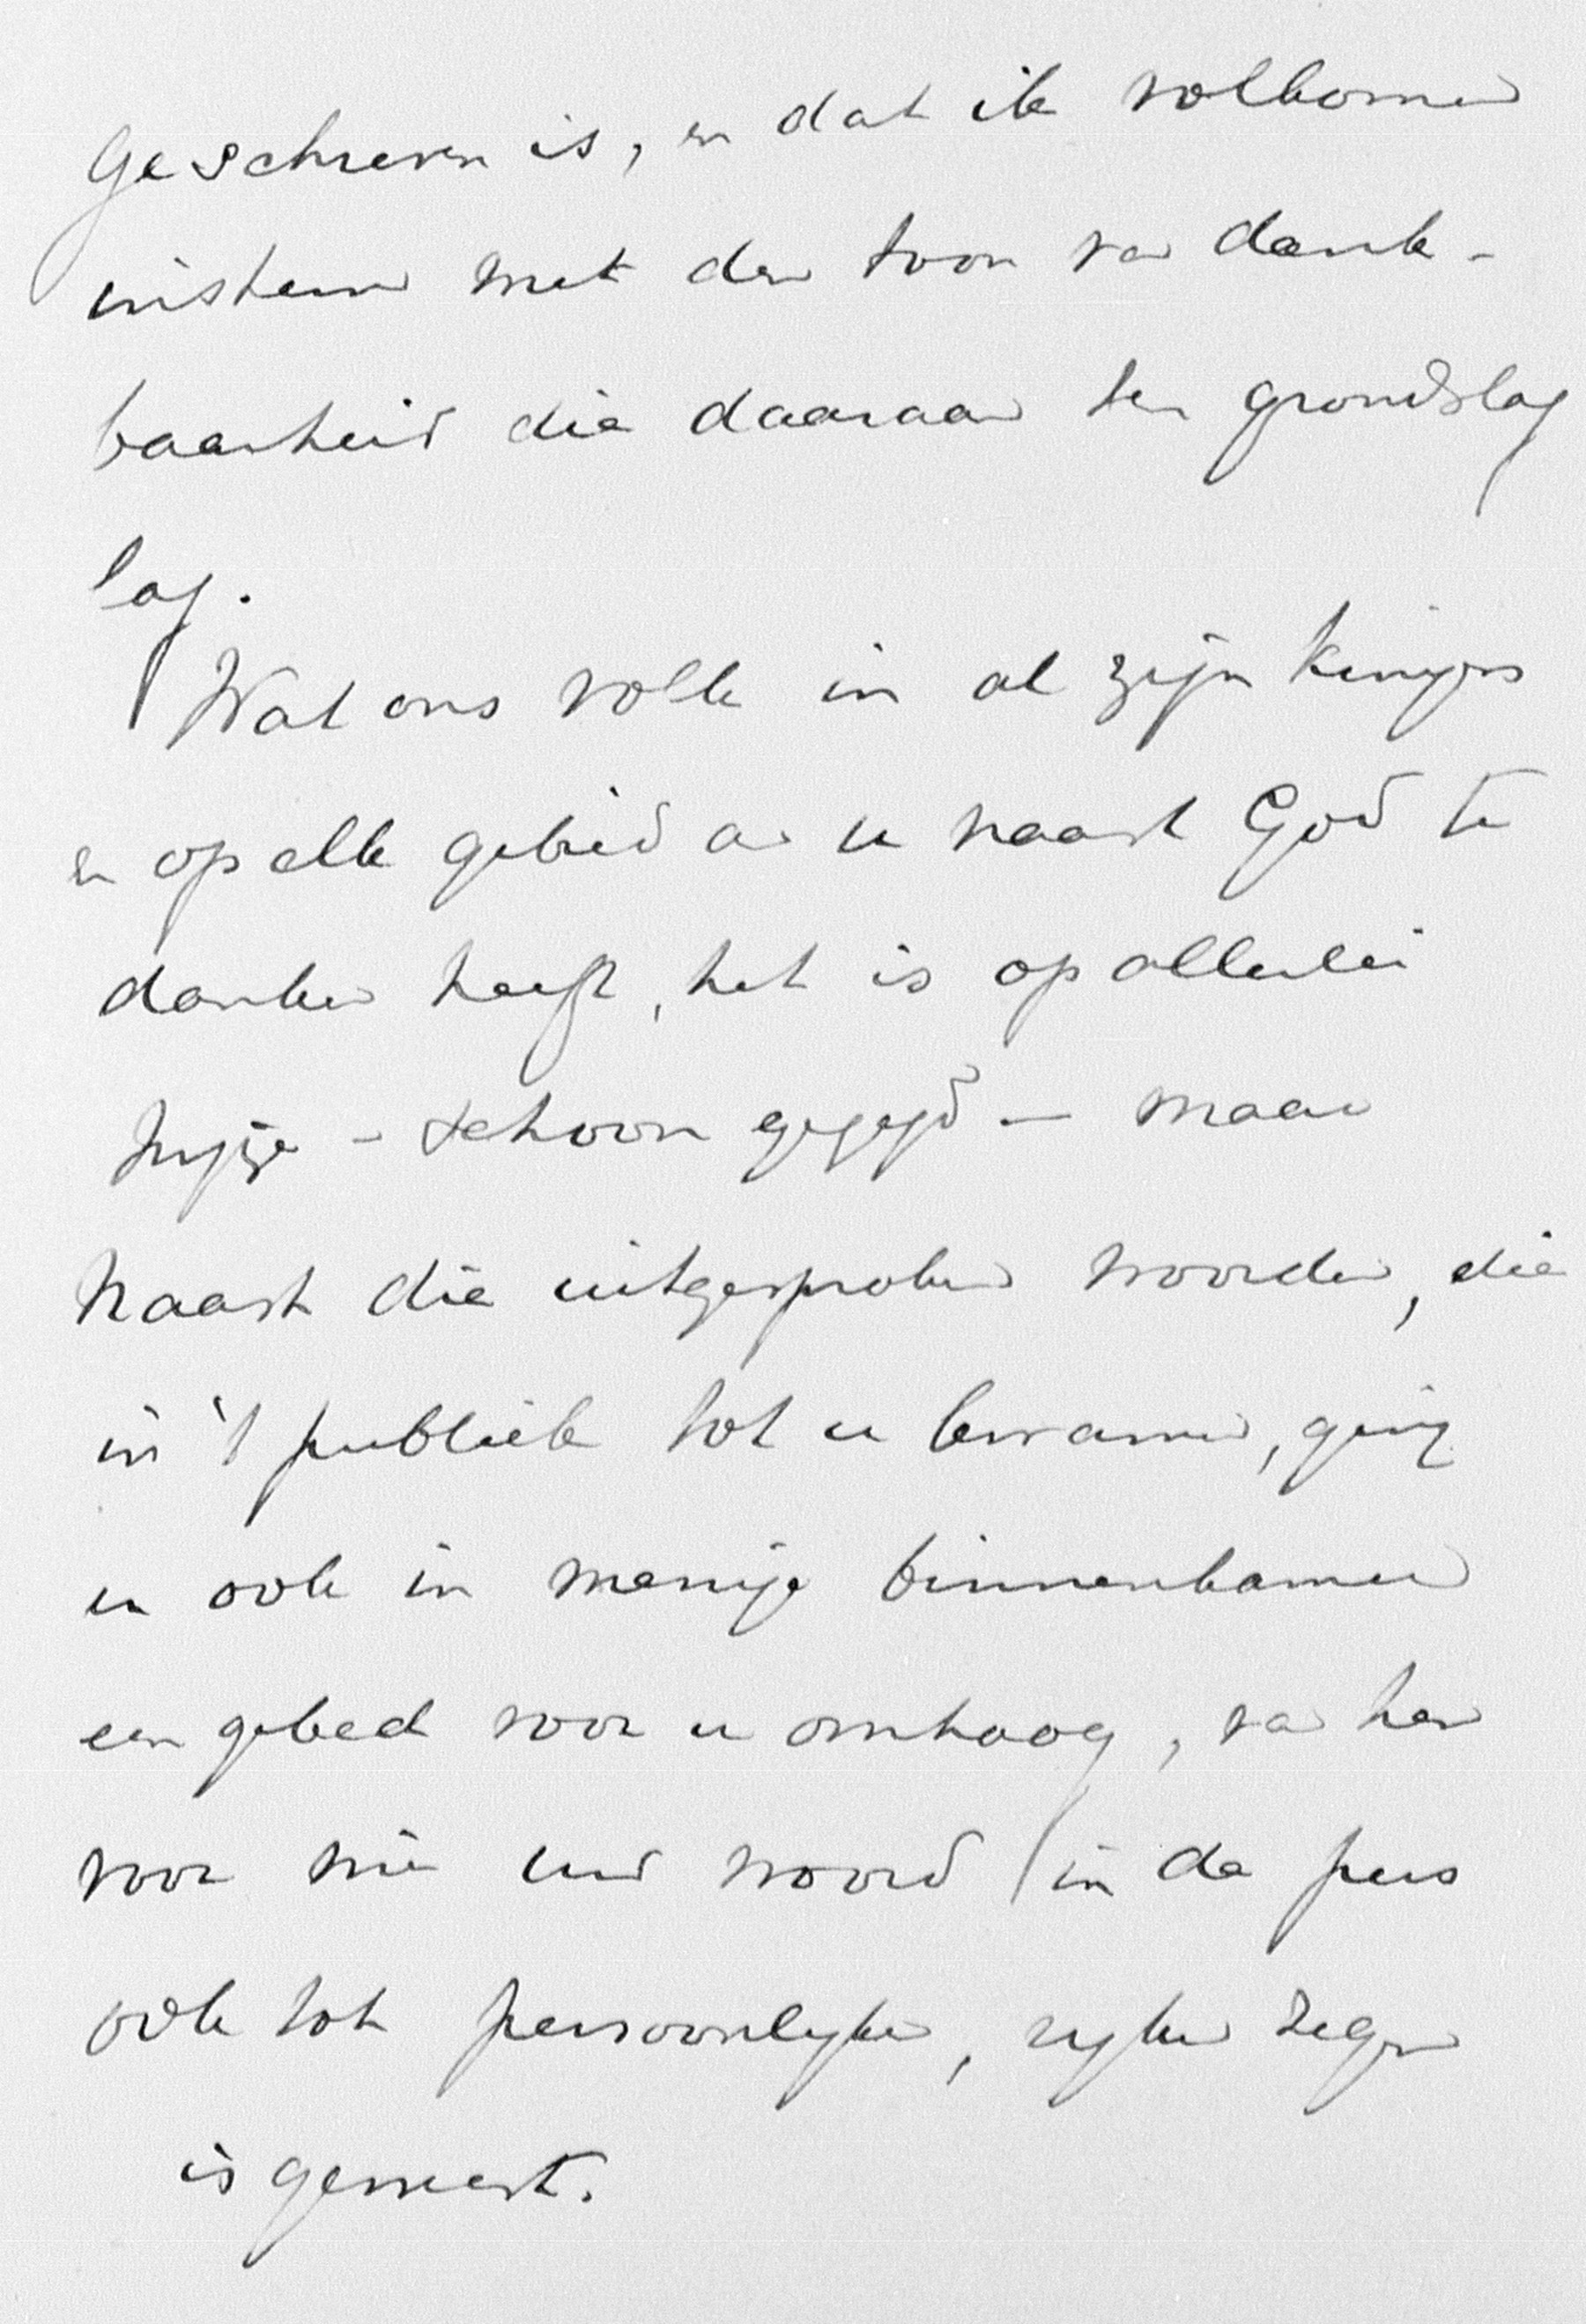 geschreven is, en dat ik volkomen
instem met den toon van dank-
baarheid die daaraan ten grondslag
lag.
Wat ons volk in al zijn kringen
en op elk gebied aan u naast God te
danken heeft, het is op allerlei
wijze - schoon gezegd - maar
naast die uitgesproken woorden, die
in 't publiek tot u kwamen, ging
er ook in menige binnenkamer
een gebed voor u omhoog, van hen
voor wie uw woord in de pers
ook tot persoonlijken, rijken zegen
is geweest.